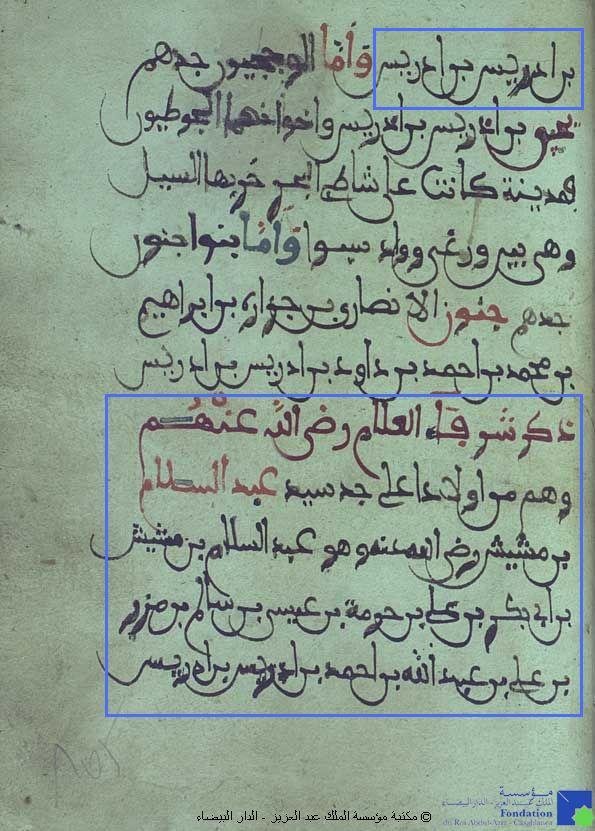 بن ادريس بن ادريس وأما الوجيهيون جدهم
يحيى بن ادريس بن ادريس واخواخهما الجوطيون
بمدينة كانت على شاطئ البحر خربها السيل
وهي بين ورغى وواد سبوا وأما بنوا جنون
جدهم جنون الانصارى بن جراره بن ابراهيم
بن محمد بن احمد بن داود بن ادريس بن ادريس
ذكر شرفاء العلام رضي الله عنهم
وهم من اولاد اعلى جد سيد عبد السلام
بن مشيش رضي الله عنه وهو عبد السلام بن مشيش
بن ابي بكر بن علي بن حرمة بن عيسى بن سالم بن مزور
بن علي بن عبد الله بن احمد بن ادريس بن ادريس
مؤسسة
الملك عبد العزيز - الدار البيضاء
Fondation
du Roi Abdul-Aziz - Casablanca
© مكتبة مؤسسة الملك عبد العزيز - الدار البيضاء